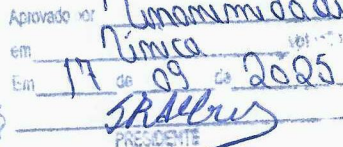 Aprovado por Unanimidade
em Única
Em 17 de 09 de 2025
PRESIDENTE